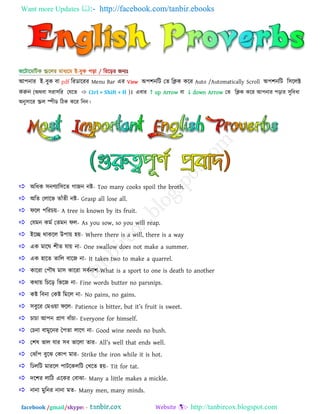 Want more Updates :- http://facebook.com/tanbir.ebooks
English Proverbs
অটোমেটিক স্ক্রলের মাধ্যমে ই-বুক পড়া / রিডেকর জন্যঃ
আপনার ই-বুক বা pdf রিডারের Menu Bar এর View অপশনটি তে ক্লিক করে Auto /Automatically Scroll অপশনটি সিলেক্ট
করুন (অথবা সরাসরি যেতে Ctrl + Shift + H )। এবার ↑ up Arrow বা ↓ down Arrow তে ক্লিক করে আপনার পড়ার সুবিধা
অনুসারে স্ক্রল স্পীড ঠিক করে নিন।
Most Important English Proverbs
(গুরুত্বপূর্ণ প্রবাদ)
অধিক সন্ন্যাসিতে গাজন নষ্ট- Too many cooks spoil the broth.
অতি লোভে তাঁতী নষ্ট- Grasp all lose all.
ফলে পরিচয়- A tree is known by its fruit.
যেমন কর্ম তেমন ফল- As you sow, so you will reap.
ইচ্ছে থাকলে উপায় হয়- Where there is a will, there is a way
এক মাঘে শীত যায় না- One swallow does not make a summer.
এক হাতে তালি বাজে না- It takes two to make a quarrel.
কারো পৌষ মাস কারো সর্বনাশ-What is a sport to one is death to another
কথায় চিড়ে ভিজে না- Fine words butter no parsnips.
কষ্ট বিনা কেষ্ট মিলে না- No pains, no gains.
সবুরে মেওয়া ফলে- Patience is bitter, but it's fruit is sweet.
চাচা আপন প্রাণ বাঁচা- Everyone for himself.
চেনা বামুনের পৈতা লাগে না- Good wine needs no bush.
শেষ ভাল যার সব ভালো তার- All's well that ends well.
ঝোঁপ বুঝে কোপ মার- Strike the iron while it is hot.
ঢিলটি মারলে পাটকেলটি খেতে হয়- Tit for tat.
দশের লাঠি একের বোঝা- Many a little makes a mickle.
নানা মুনির নানা মত- Many men, many minds.
facebook /gmail/skype: - tanbir.cox Website :- http://tanbircox.blogspot.com